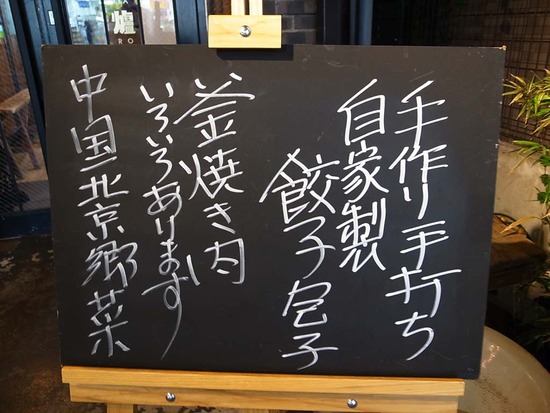 手作り手打ち
自家製
餃子包子
釜焼き肉
いろいろあります
中国北京郷菜
爐
RO